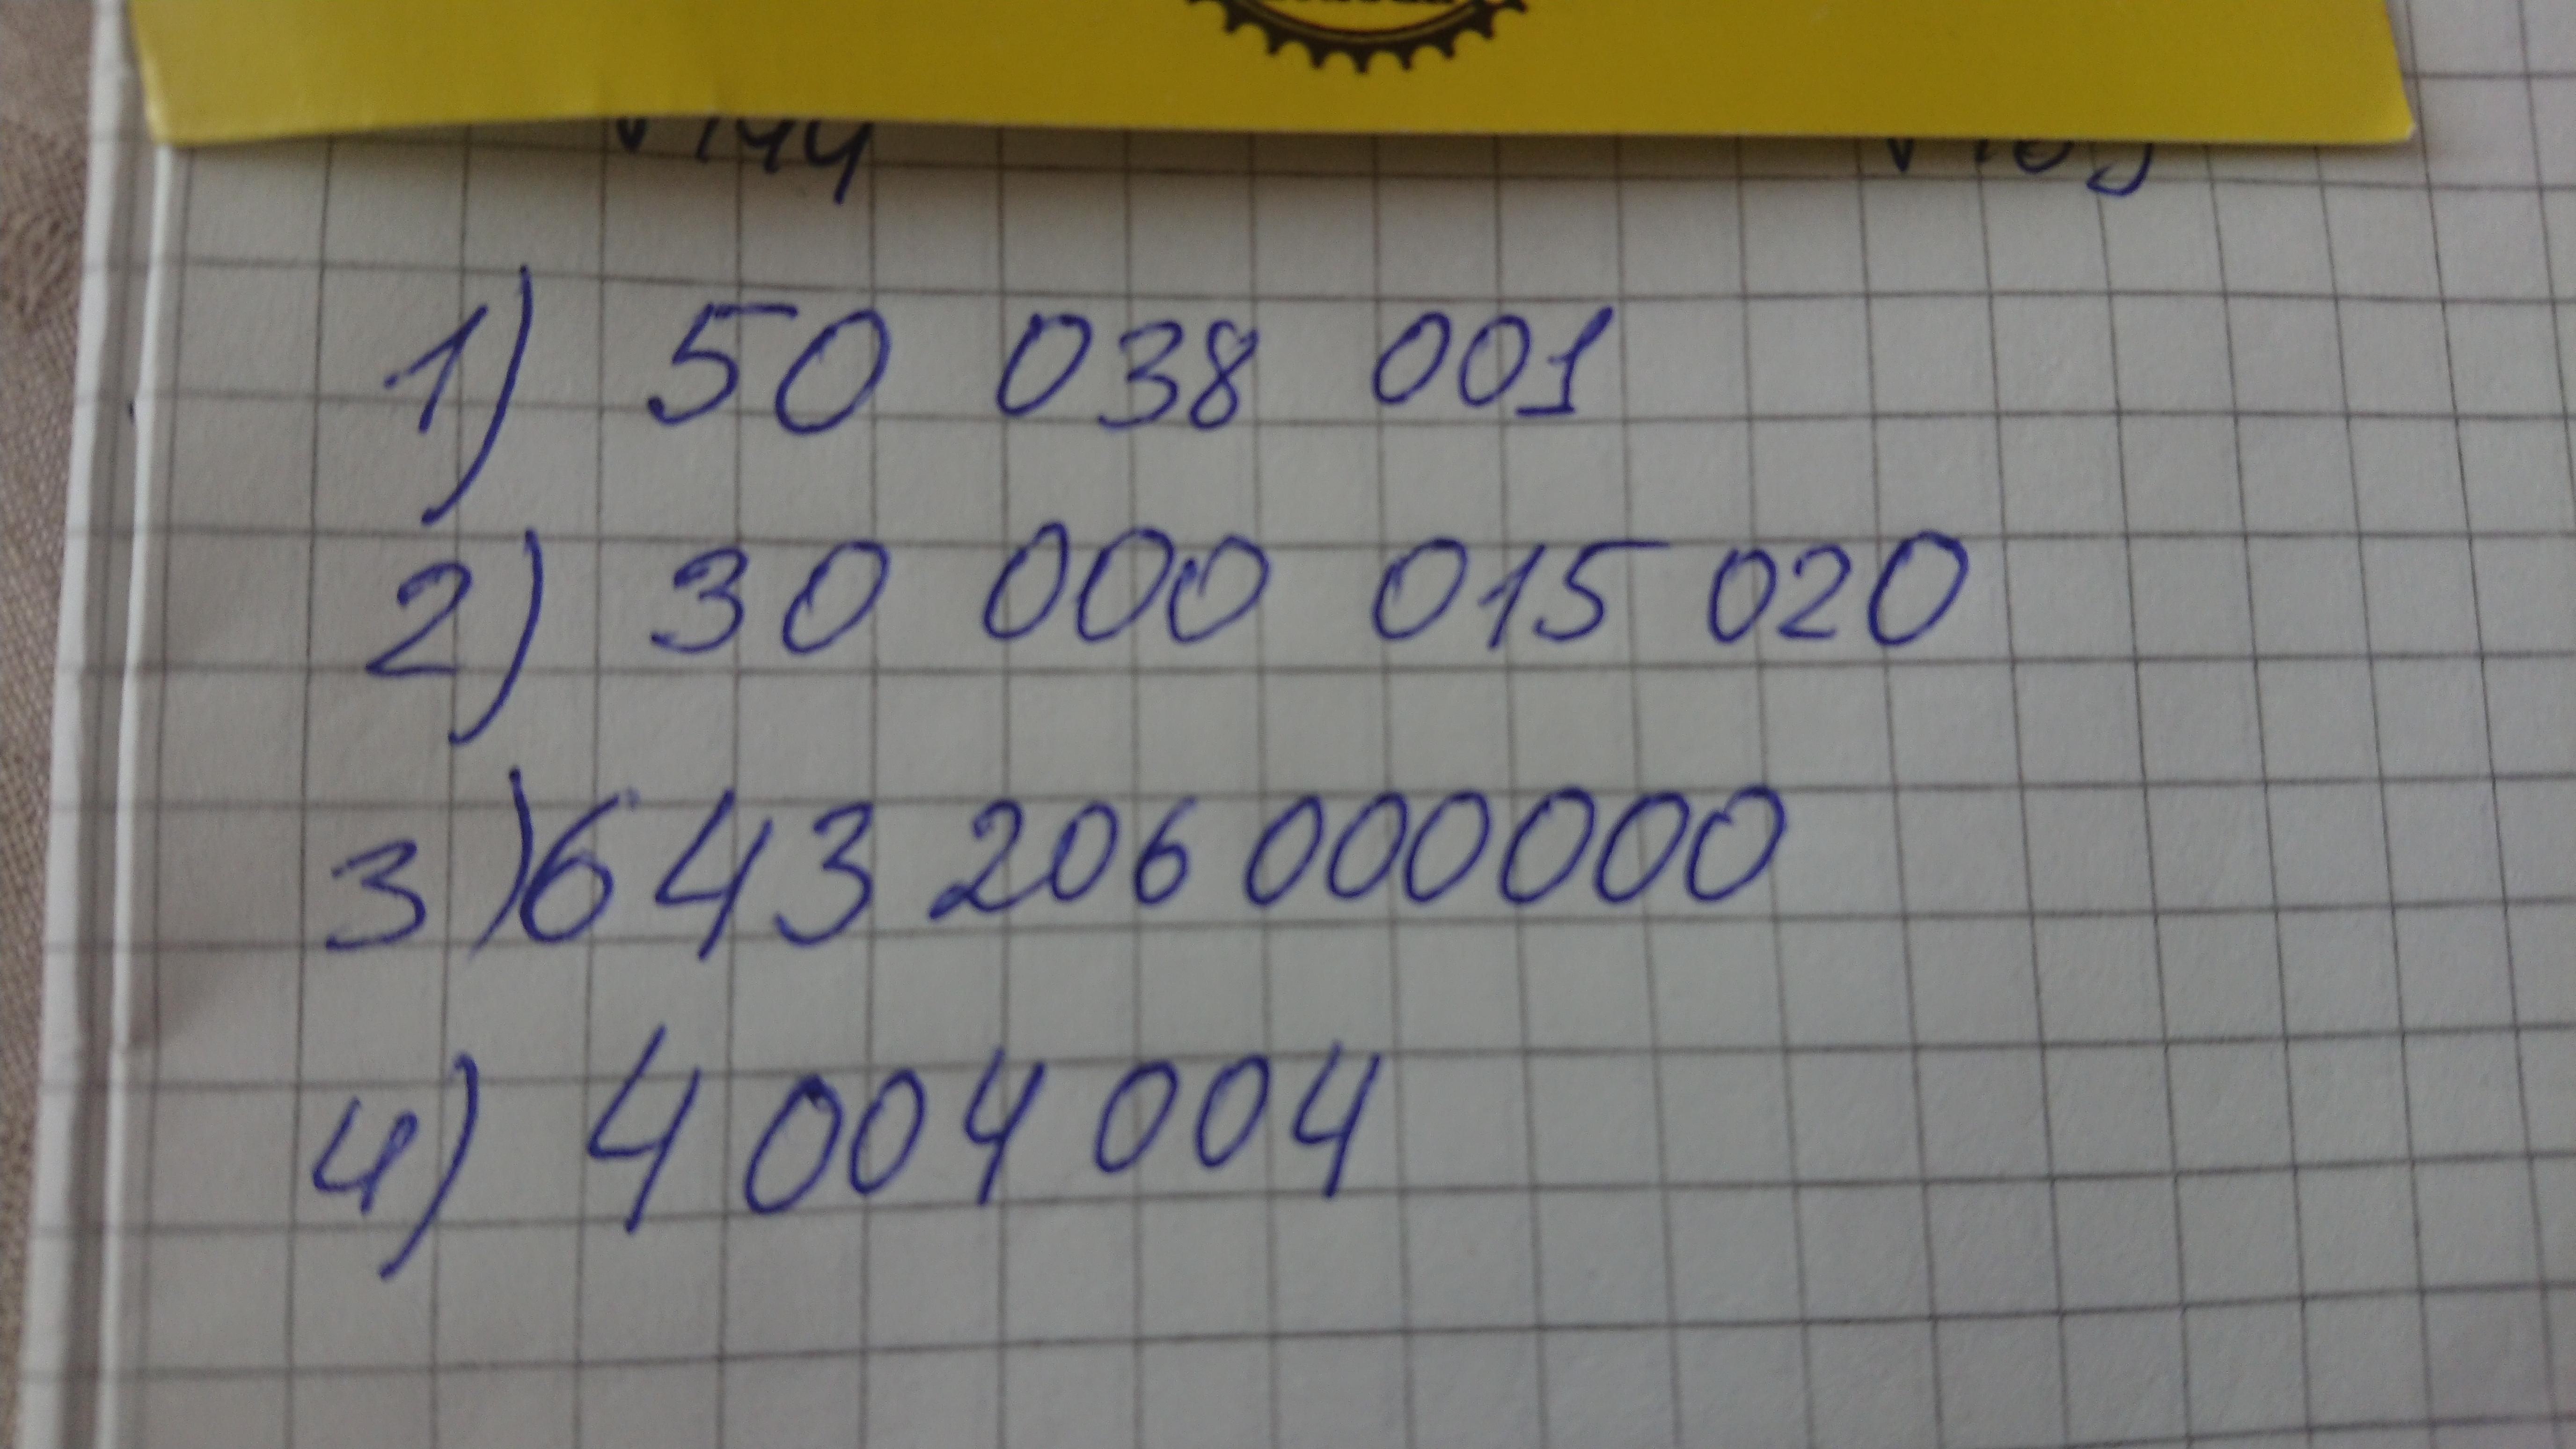 1) 50 038 001
2) 30 000 015 020
3) 643 206 000000
4) 4 004 004